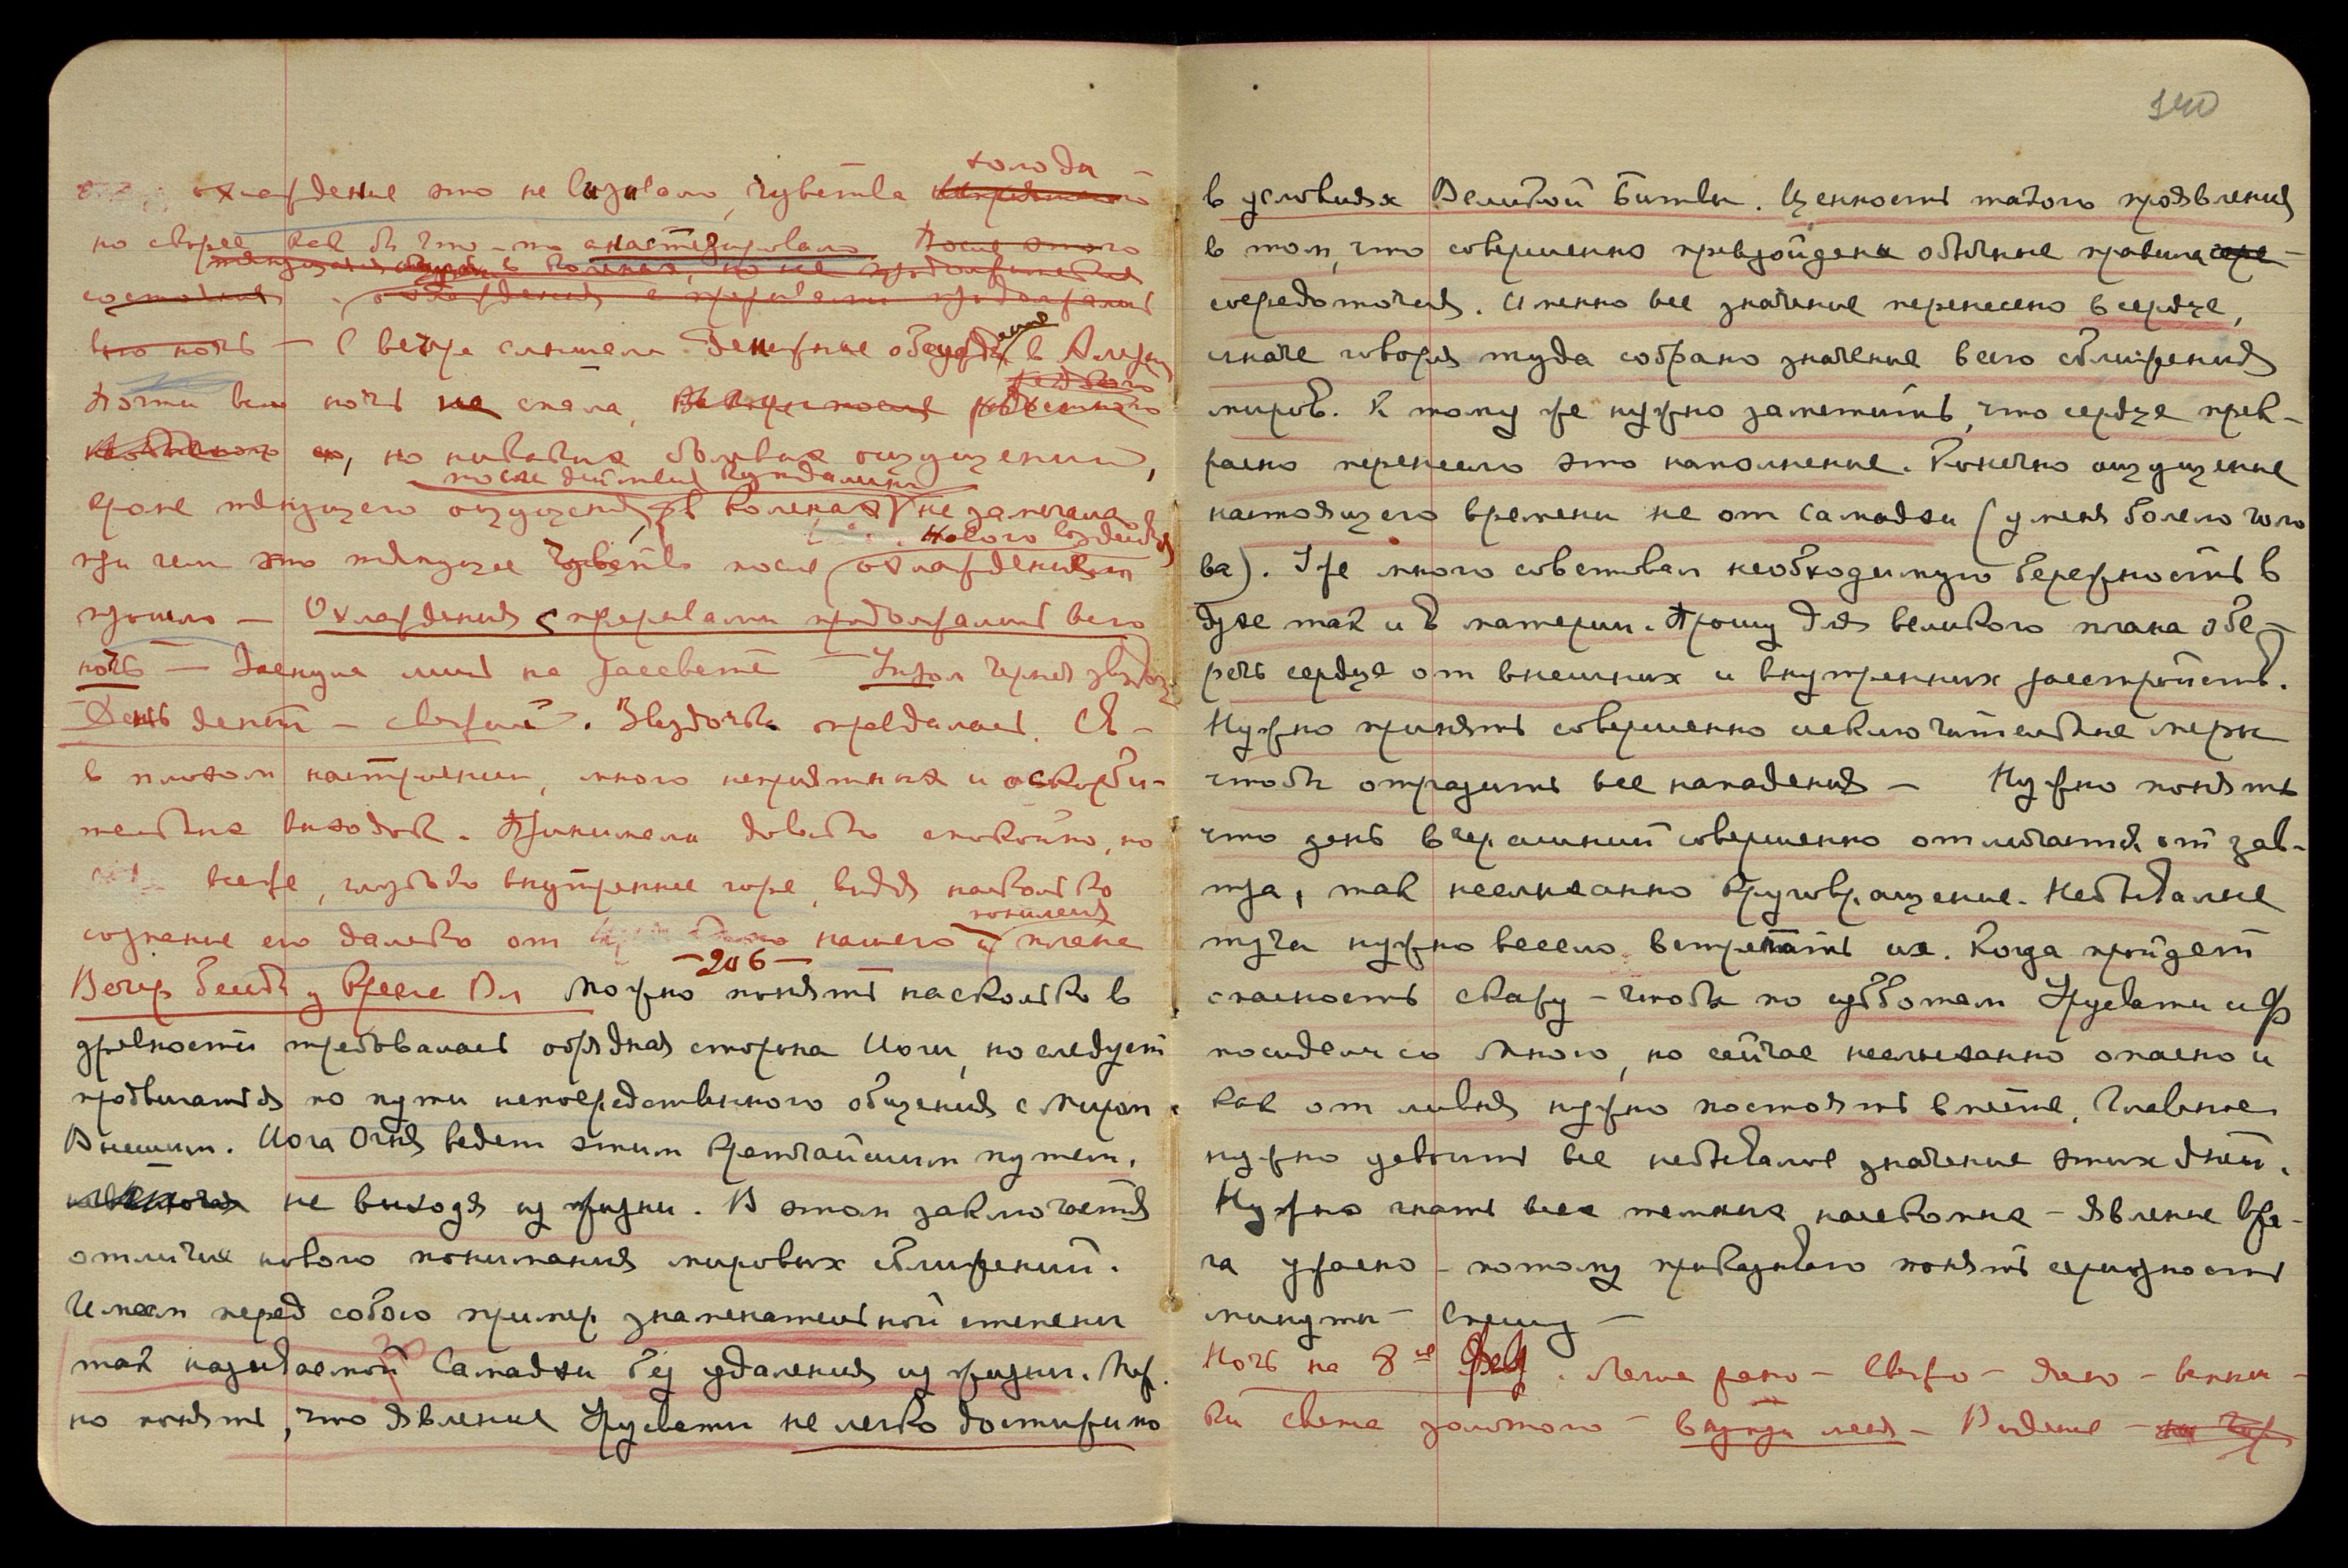 холода
охлаждение это не вызывало, чувства
но скорее как бы что-то анастезировало После этого
тянущая в коленях, но не продолжительная
состояния. охлаждения с перерывами продолжались
всю ночь — С вечера слышала Денежные обсуждение в Амери
Почти всю ночь не спала,
но никаких болевых ощущений,
после действия Кундалини
кроме тянущего ощущения в коленях не замечала
нового воздейств
при чем это тянущее чувство после охлаждения
прошло — Охлаждения с перерывами продолжались всю
ночь — Заснула лишь на рассвете — Узрел черная звезда
День десятый – свежий. Звездочка предалась. Св –
в плохом настроении, много неприятных и оскорби-
тельных выходок. Принимала довольно спокойно, но
всеже, глубоко внутреннее горе, видя насколько
понимания
сознание его далеко от нашего и плана
— 206 —
Вечер беседы у кресла Вл Можно понять насколько в
древности требовалась обрядная сторона Йоги, но следует
продвигаться по пути непосредственного общения с Миром
Внешним. Йога Огня ведет этим кратчайшим путем,
не выходя из жизни. В этом заключается
отличие нового понимания мировых сближений.
Имеем перед собою пример знаменательной степени
так называемой Самадхи без удаления из жизни. Нуж.
но понять, что явление Урусвати не легко достижимо
140
в условиях Великой Битвы. Ценность такого проявления
в том, что совершенно превзойдены обычные правила сре-
средоточия. Именно все значение перенесено в сердце,
иначе говоря туда собрано значение всего сближения
миров. К тому же нужно заметить, что сердце прек-
расно перенесло это наполнение. Конечно ощущение
настоящего времени не от Самадхи (у меня болела голо
ва). Уже много советовал необходимую бережность в
духе так и в материи. Прошу для великого плана обе-
речь сердце от внешних и внутренних расстройств.
Нужно принять совершенно исключительные меры
чтобы отразить все нападения — Нужно понять
что день вчерашний совершенно отличается от зав-
тра, так неслыханно круговращение. Небывалые
тучи нужно весело встречать их. Когда пройдет
опасность скажу – чтобы по субботам Урусвати и Ф
посиделись Много, но сейчас неслыханно опасно и
как от ливня нужно постоять вместе. Главное
нужно усвоить все небывалое значение этих дней.
Нужно гнать всех темных насекомых – явление вра-
га ужасно – потому приказываю понять серьезность
минуты – Спешу —
Ночь на 8ое Фев. Легла рано – Свежо – Ясно – вспыш-
ки света золотого – внутри меня – Видение –